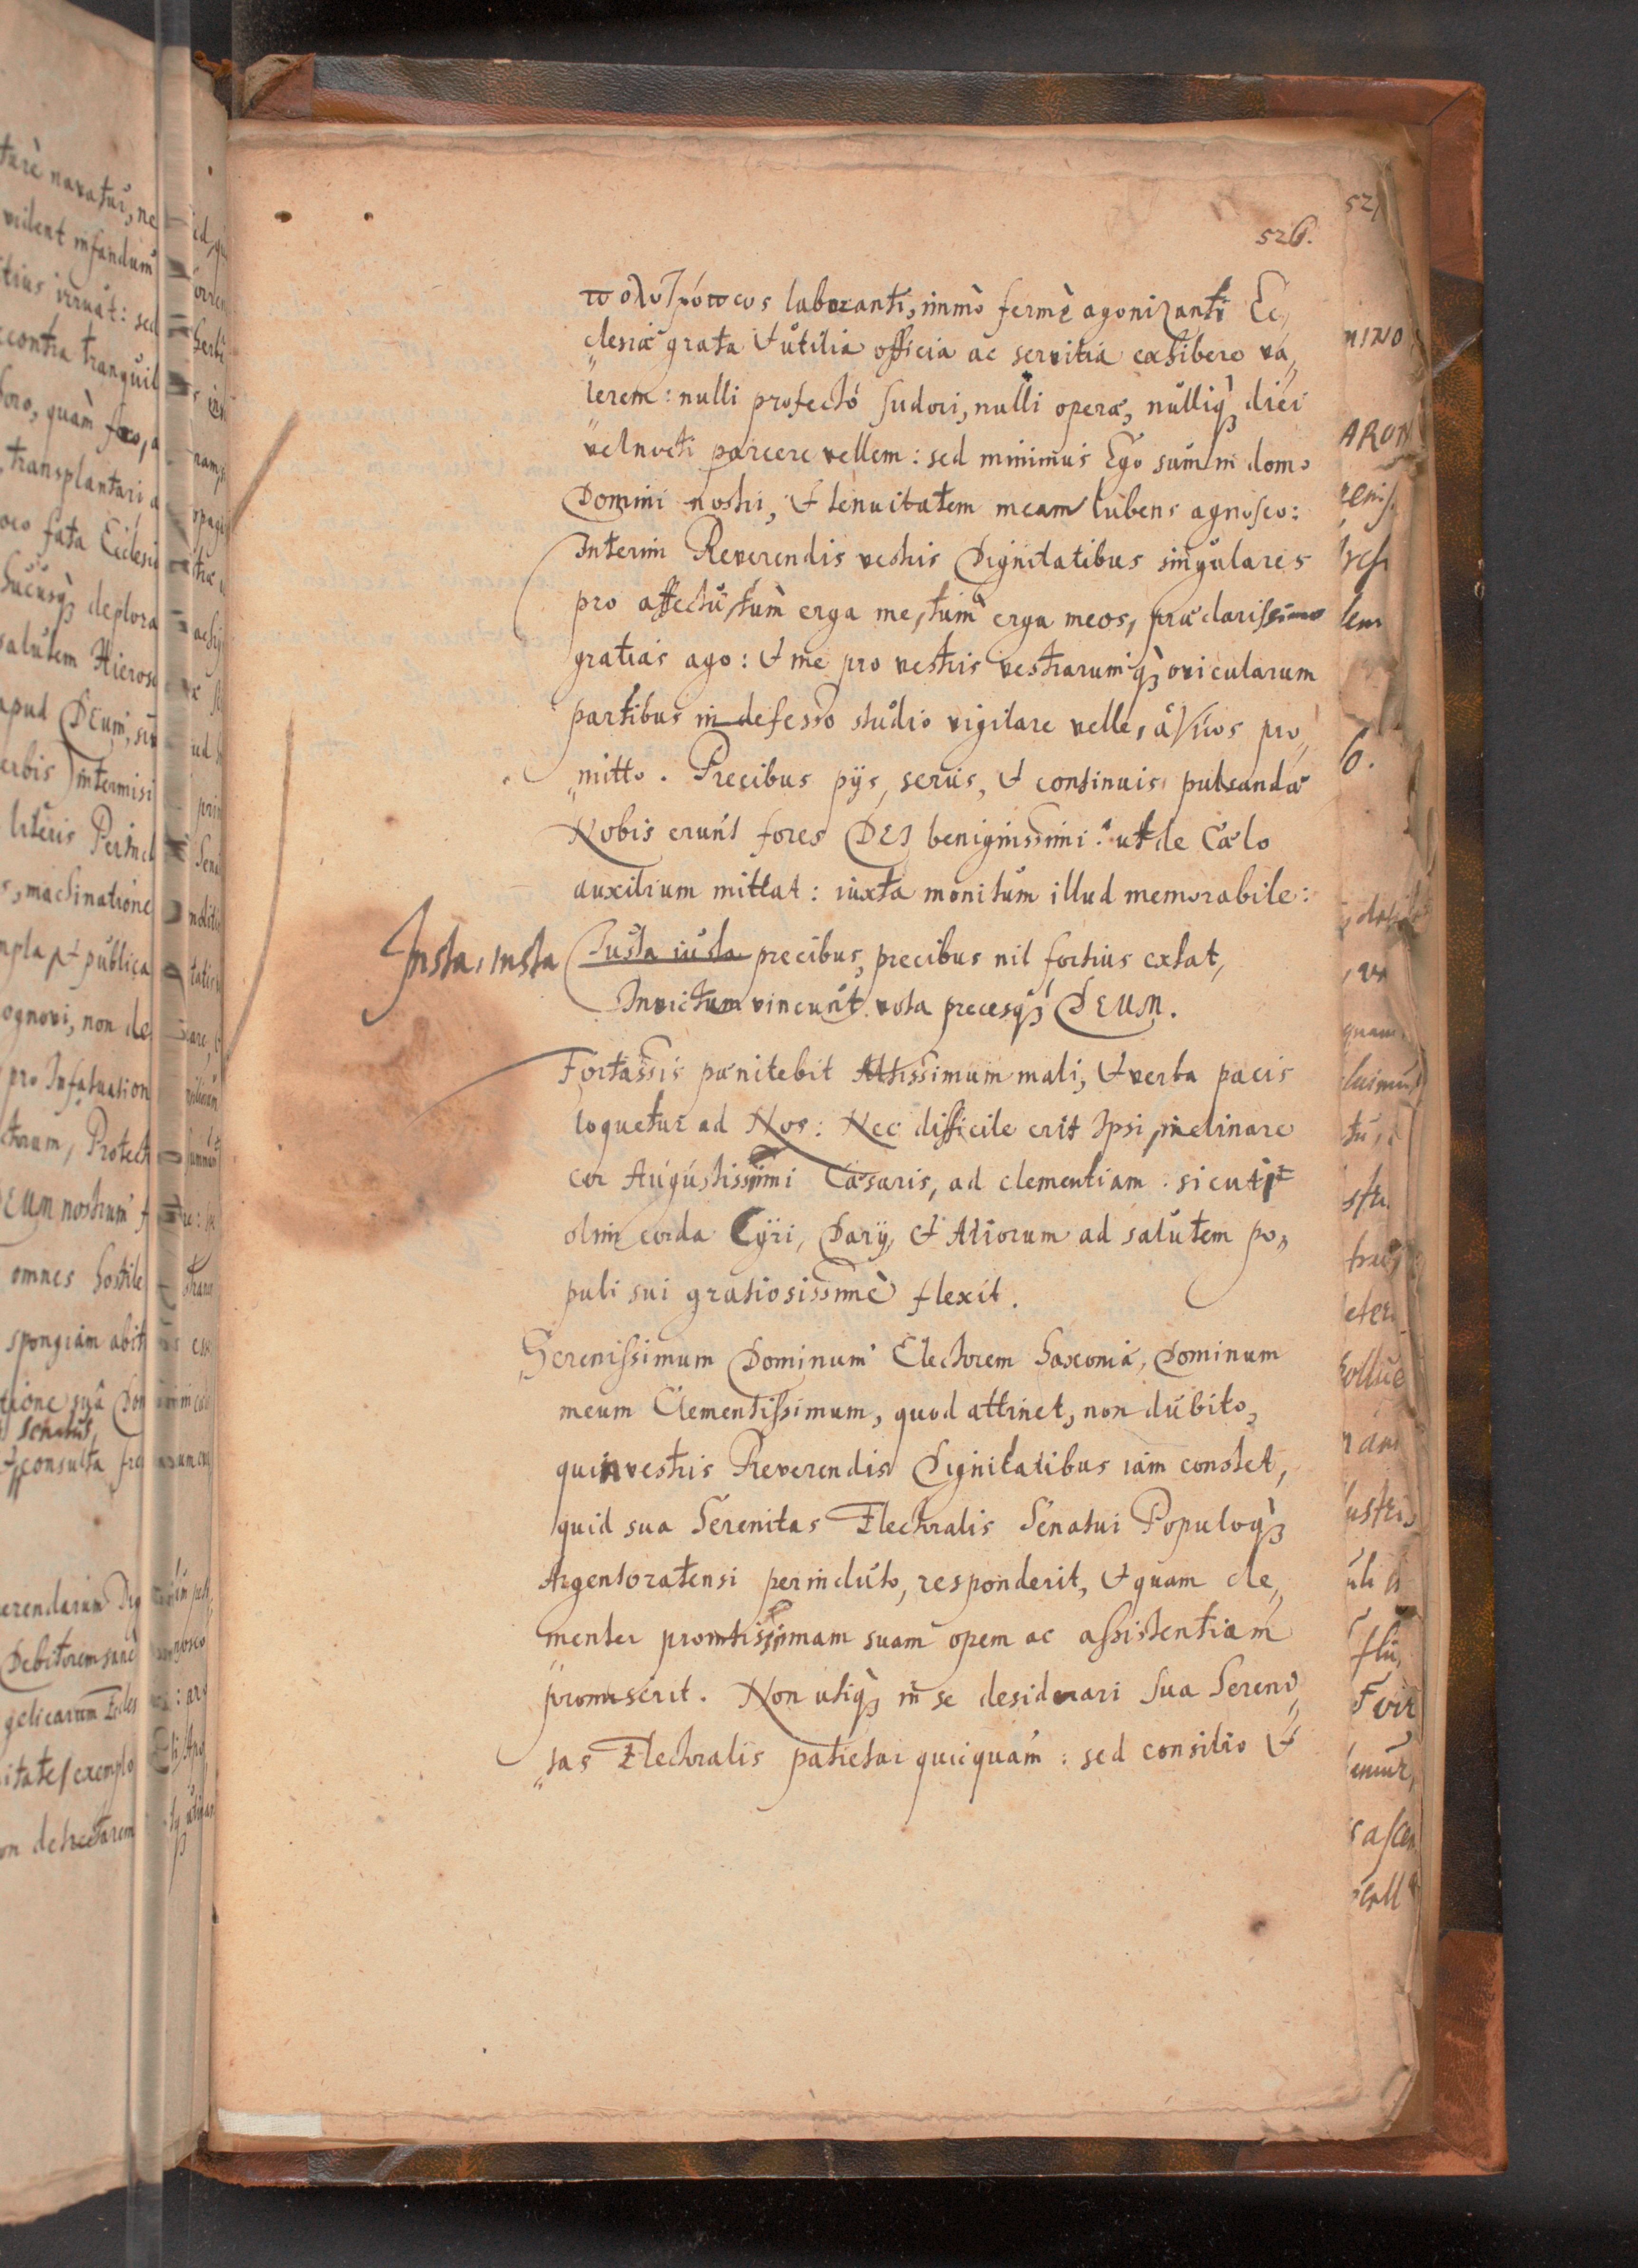 526.
πολυτρόπως laboranti, immò fermè agonizanti Ec„
„clesiæ grata & utilia officia ac servitia exhibere va„
„lerem: nulli profectò sudori, nulli operæ, nulliq; diei
vel nocti parcere vellem: sed minimus Ego sum in domo
Domini nostri, & tenuitatem meam lubens agnosco:
Interim Reverendis vestris Dignitatibus singulares
pro affectu, tùm erga me, tùm erga meos, præclarissimo
gratias ago: & me pro vestris vestrarumq; ovicularum
partibus indefesso studio vigilare velle, pro„
„mitto. Precibus pijs, seriis, & continuis, pulsandæ
Nobis erunt fores DEI benignissimi: ut de Cælo
auxilium mittat: iuxta monitum illud memorabile:
Insta, insta Iusta iusta precibus, precibus nil fortius extat,
Invictum vincunt vota precesq; DEUM.
Fortassis pænitebit Altissimum mali, & verba pacis
loquetur ad Nos: Nec difficile erit Ipsi, inclinare
cor Augustissimi Cæsaris, ad clementiam: sicuti
olim corda Cyri, Darij, & Aliorum ad salutem po„
puli sui gratiosissimè flexit.
Serenissimum Dominum Electorem Saxoniæ, Dominum
meum Clementissimum, quod attinet, non dubito,
quin vestris Reverendis Dignitatibus iam constet,
quid sua Serenitas Electoralis Senatui Populoq;
Argentoratensi perincluto, responderit, & quam cle„
menter promtissimam suam opem ac assistentiam
promiserit. Non utiq; in se desiderari Sua Sereni„
„tas Electoralis patietur quicquam: sed consilio &